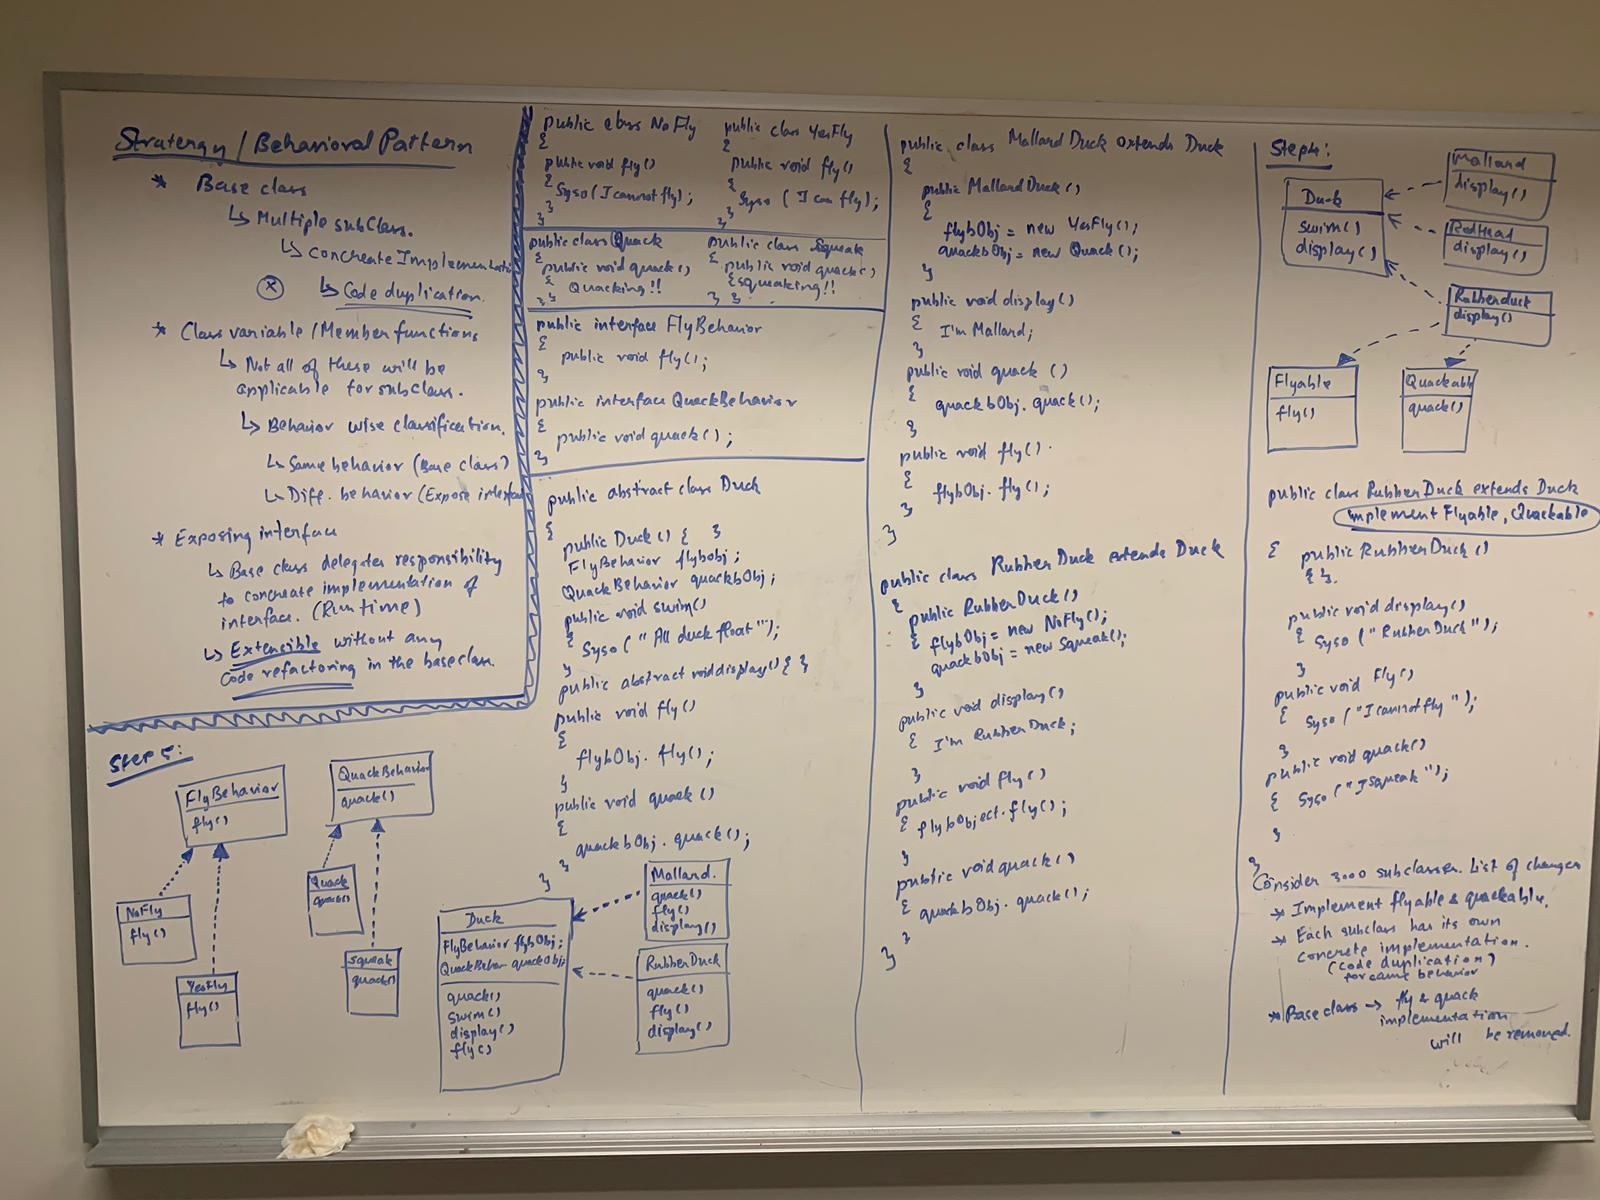 Stratergy / Behavioral Pattern
* Base class
↳ Multiple subclass.
↳ Concreate Implementati
ⓧ ↳ Code duplication.
* Class variable / Member functions
↳ Not all of these will be
applicable for subclass.
↳ Behavior wise classification.
↳ Same behavior (Base class)
↳ Diff. behavior (Expose interface
* Exposing interface
↳ Base class delegates responsibility
to concreate implementation of
interface. (Run time)
↳ Extensible without any
Code refactoring in the base class.
Step 5:
FlyBehavior
fly()
QuackBehavior
quack()
NoFly
fly()
YesFly
fly()
Quack
quack()
Squeak
quack()
public class NoFly
{
public void fly()
{
Syso(I cannot fly);
}
}
public class YesFly
{
public void fly()
{
Syso (I can fly);
}
}
public class Quack
{ public void quack()
{ Quacking!!
} }
public class Squeak
{ public void quack()
{ squeaking!!
} }
public interface FlyBehavior
{
public void fly();
}
public interface QuackBehavior
{
public void quack();
}
public abstract class Duck
{
public Duck() { }
FlyBehavior flybobj;
QuackBehavior quackbObj;
public void swim()
{ Syso ("All duck float");
}
public abstract void display() { }
public void fly()
{
flybObj. fly();
}
public void quack()
{
quackbObj. quack();
}
}
Duck
FlyBehavior flybObj;
QuackBehav quackObj;
quack()
swim()
display()
fly()
Malland.
quack()
fly()
display()
RubberDuck
quack()
fly()
display()
public class Malland Duck extends Duck
{
public MallandDuck()
{
flybObj = new YesFly();
quackbObj = new Quack();
}
public void display()
{
I'm Malland;
}
public void quack ()
{
quackbObj. quack();
}
public void fly().
{
flybObj. fly();
}
}
public class RubberDuck extends Duck
{
public RubberDuck()
{ flybObj = new NoFly();
quackbObj = new Squeak();
}
public void display()
{ I'm RubberDuck;
}
public void fly()
{ flybObject. fly();
}
public void quack()
{ quackbObj. quack();
}
}
Step4:
Duck
swim()
display()
Malland
display()
RedHead
display()
Rubberduck
display()
Flyable
fly()
Quackabl
quack()
public class RubberDuck extends Duck
implement Flyable, Quackable
{ public RubberDuck()
{ }.
public void display()
{ Syso ("RubberDuck");
}
public void Fly()
{ Syso ("I cannot fly");
}
public void quack()
{ Syso ("I squeak");
}
}
Consider 3000 subclasses. List of changes
* Implement flyable & quackable.
* Each subclass has its own
concrete implementation.
(code duplication)
for same behavior
* Base class → fly & quack
implementation
will be removed.